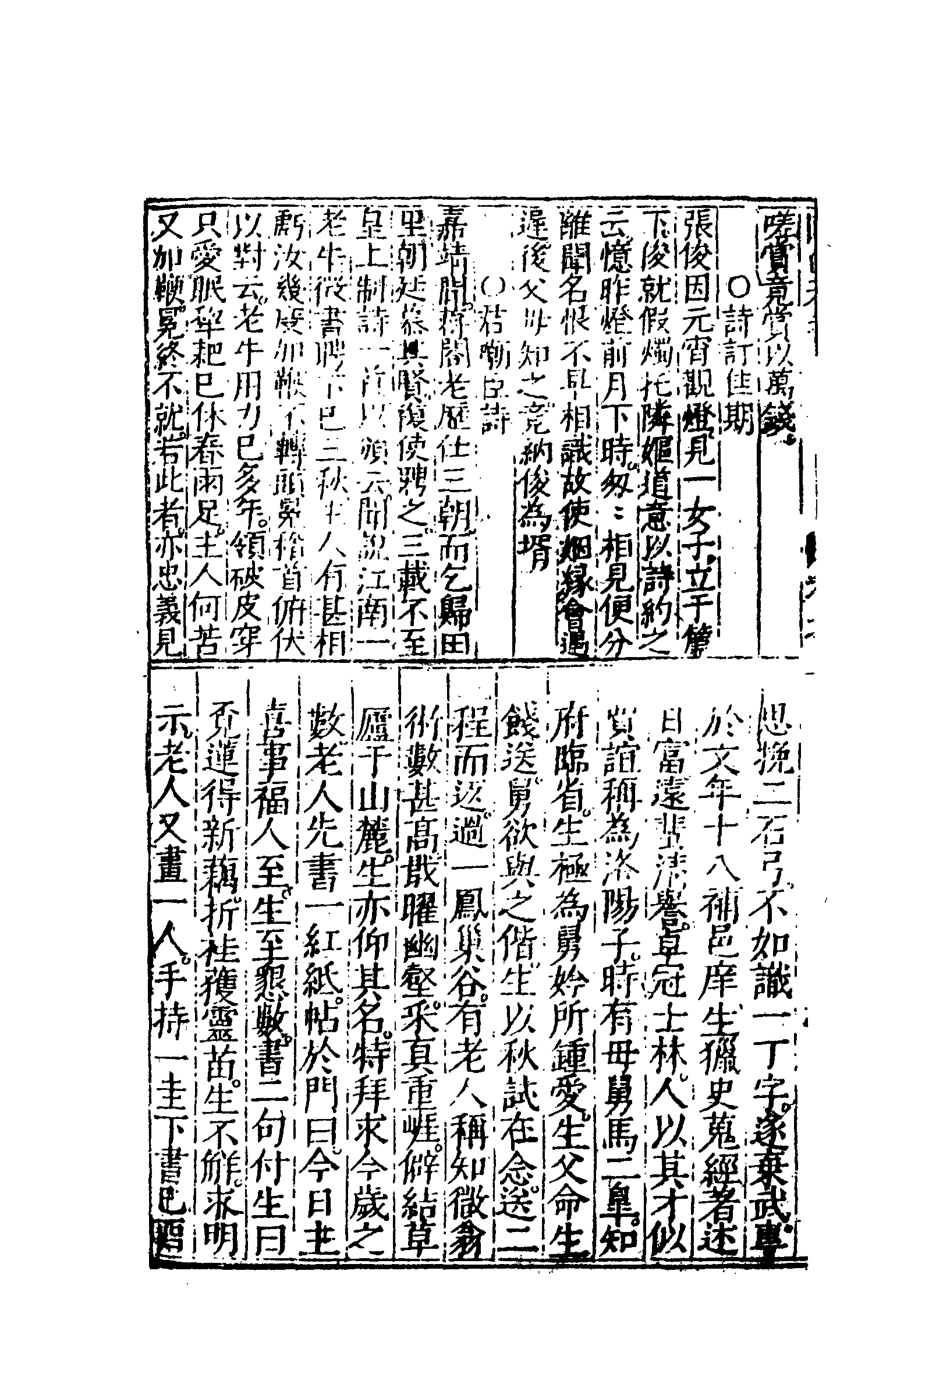 嗟賞竟賞以萬錢
○詩訂佳期
張俊因元宵觀燈見一女子立于簷
下俊就假燭托隣嫗道意以詩約之
云憶昨燈前月下時匆匆相見便分
離聞名恨不早相識故使姻緣會遇
遲後父母知之竟納俊為壻
○君嘲臣詩
嘉靖間蔣閣老歷仕三朝而乞歸田
里朝廷慕其賢復使聘之三載不至
皇上制詩一首以頒云聞說江南一
老牛徵書聘下已三秋主人有甚相
虧汝幾度加鞭不轉頭冕稽首俯伏
以對云老牛用力已多年領破皮穿
只愛眠犂耙已休春雨足主人何苦
又加鞭冕終不就若此者亦忠義見
思挽二石弓不如識一丁字遂棄武專
於文年十八補邑庠生獵史蒐經著述
日富遠輩清譽卓冠士林人以其才似
賈誼稱為洛陽子時有母舅馬二皐知
府臨省生極為舅妗所鍾愛生父命生
餞送舅欲與之偕生以秋試在念送二
程而返過一鳳巢谷有老人稱知微翁
術數甚高戢曜幽壑采真重崕僻結草
廬于山麓生亦仰其名特拜求今歲之
數老人先書一紅紙帖於門曰今日主
喜事福人至生至懇數書二句付生曰
覓蓮得新藕折桂獲靈苗生不解求明
示老人又畫一人手持一圭下書己酉